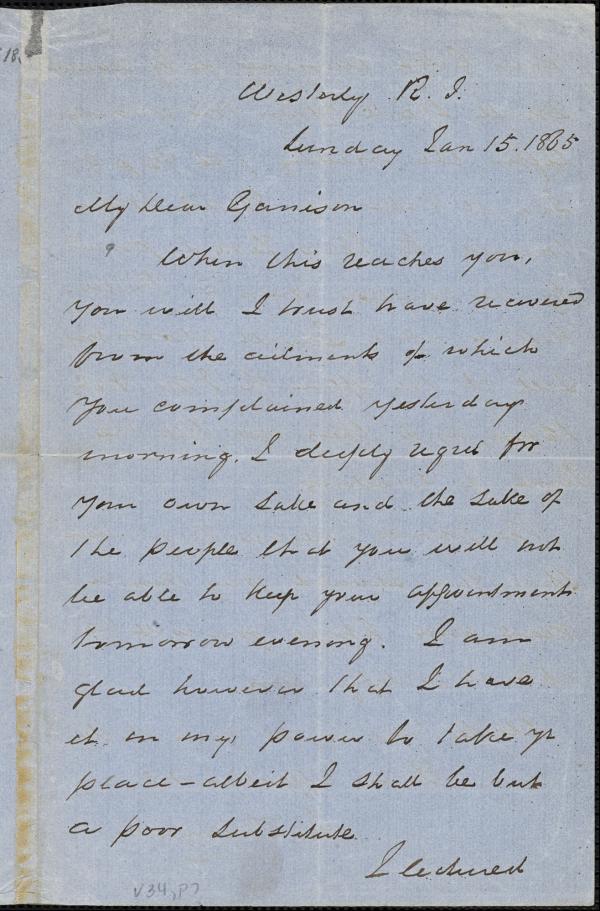 Westerly R. I.
Sunday Jan 15. 1865
My Dear Garrison
When this reaches you,
you will I trust have recovered
from the ailments of which
you complained yesterday
morning. I deeply regret for
your own sake and the sake of
the people that you will not
be able to keep your appointment
tomorrow evening. I am
glad however that I have
it in my power to take yr
place - albeit I shall be but
a poor substitute
I lectured
V34, P7